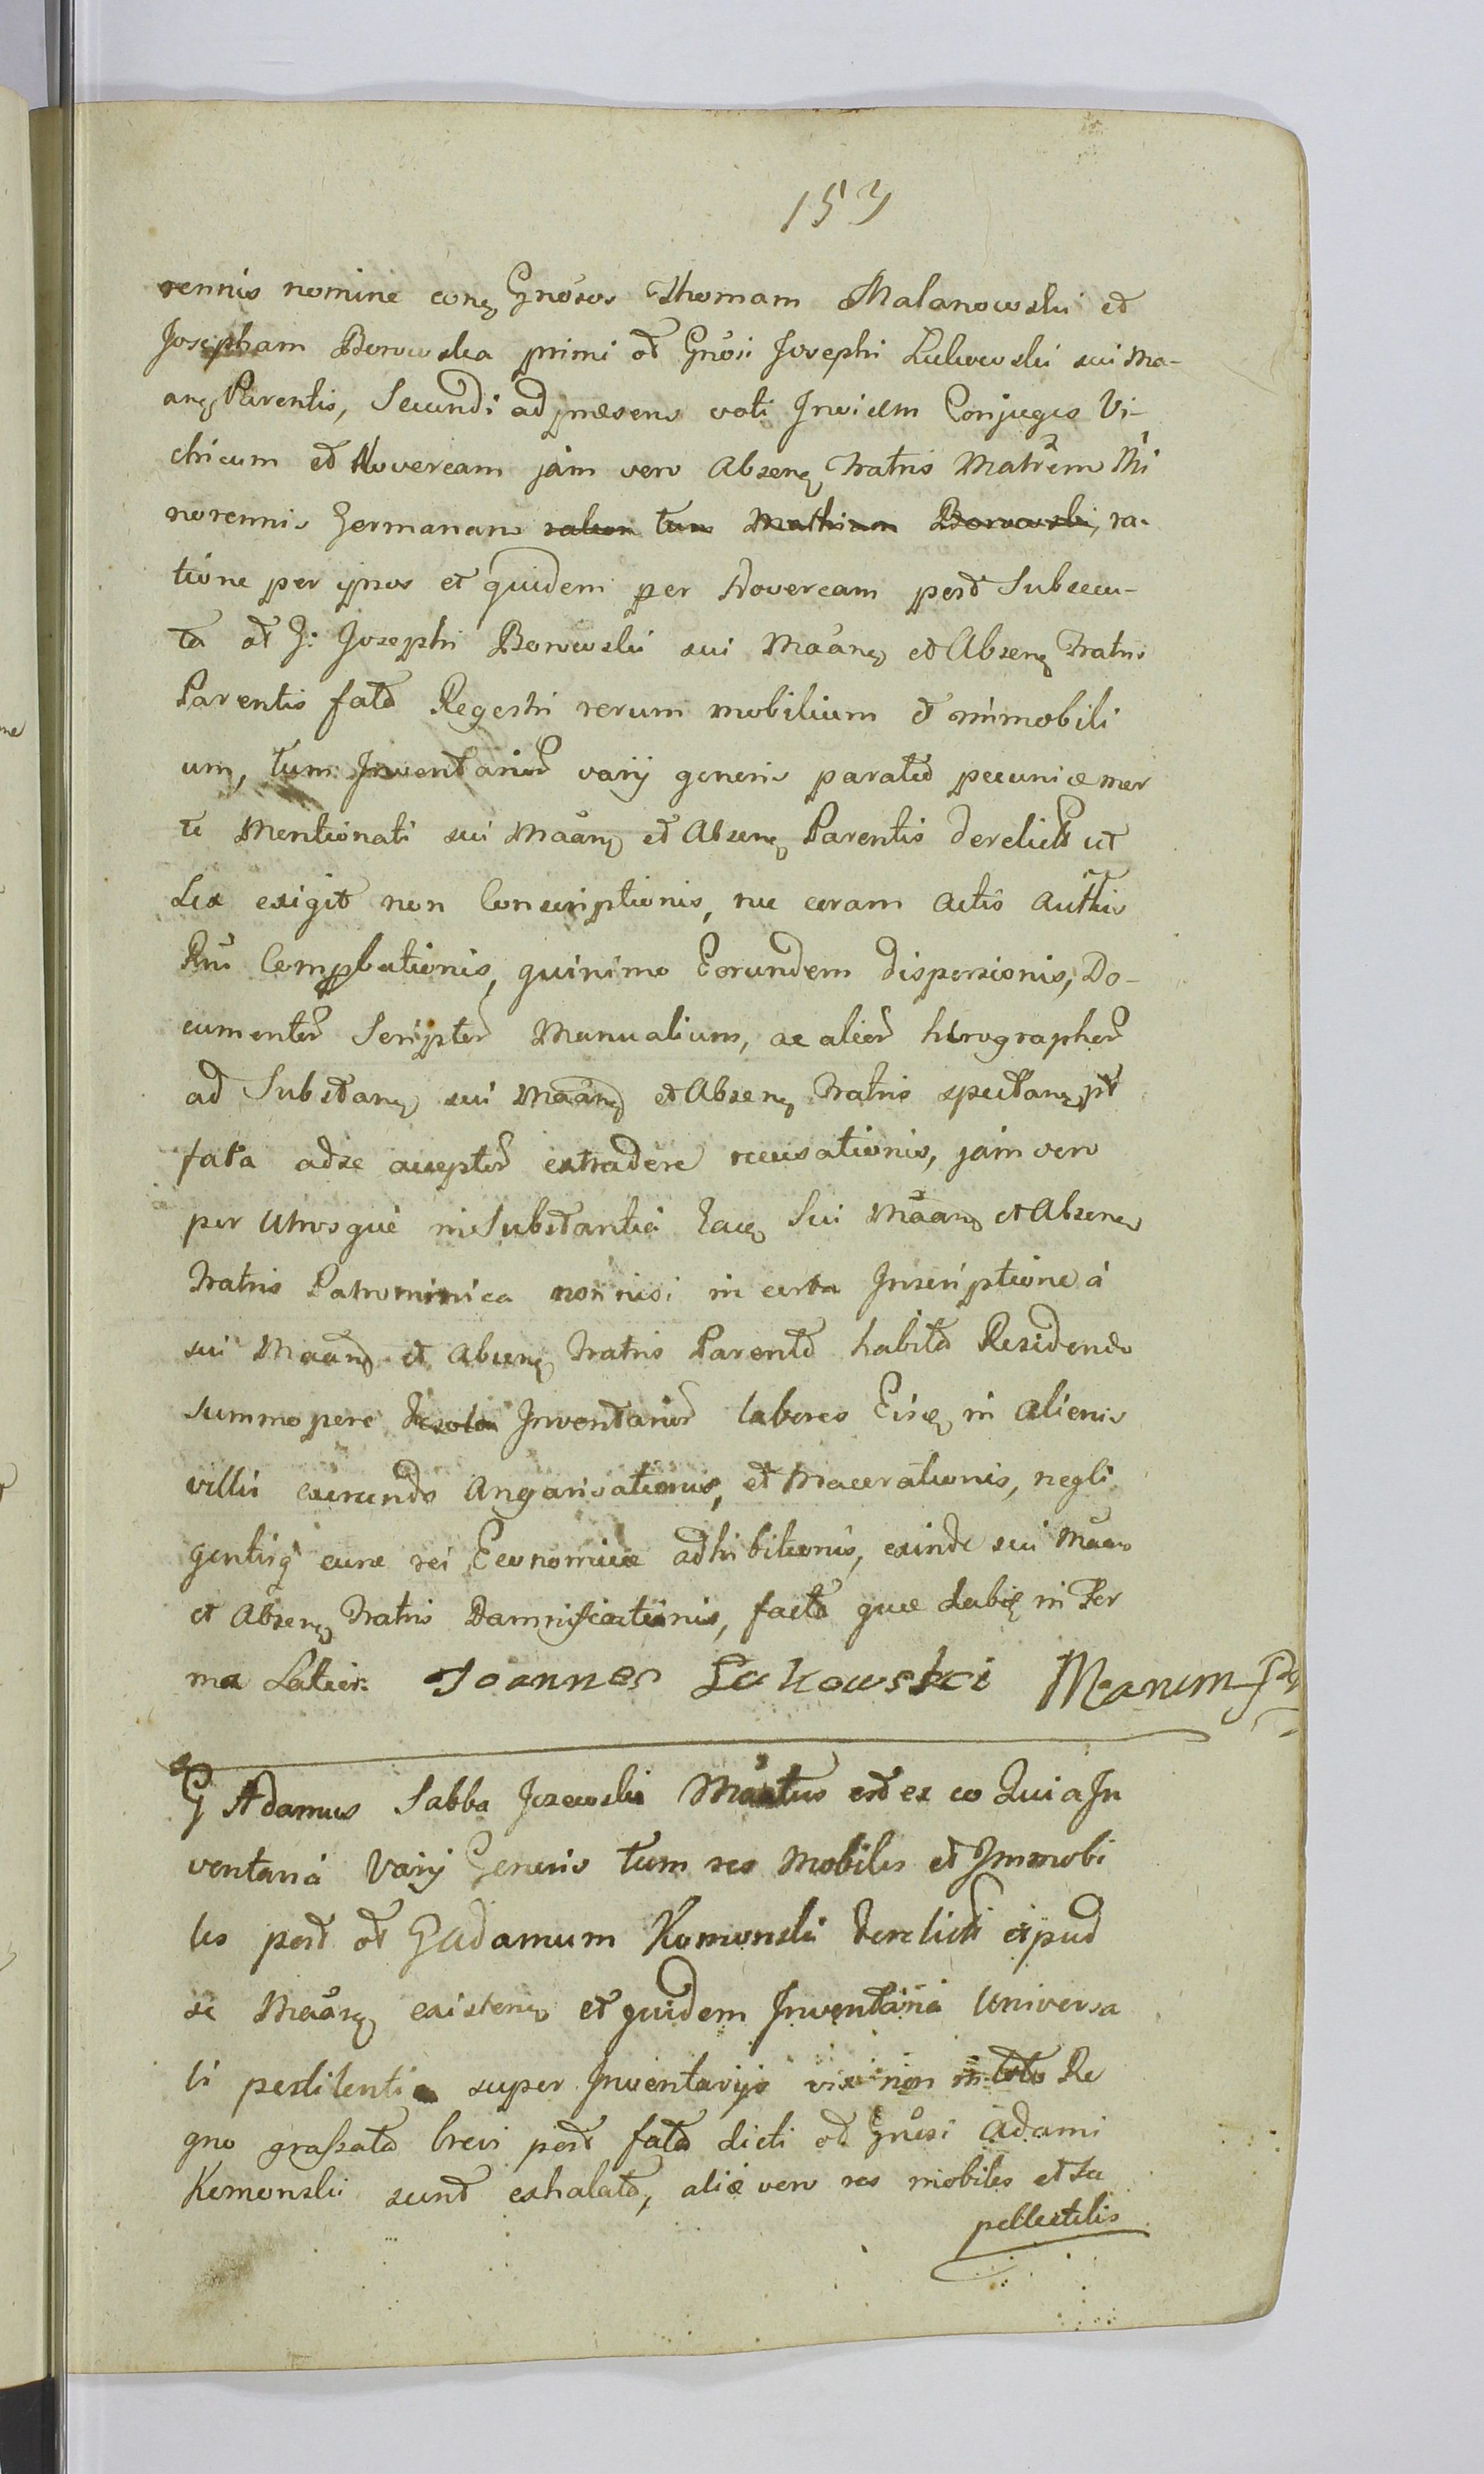 153
rennis nomine conq Gnosos Thomam Malanowski et
Josepham Borowska primi ot Gnosi Josephi Lukowski sui Ma-
anq Parentis, Secundi ad præsens voti Invicem Conjuges Vi-
tricum et Novercam jam vero Absenq Fratris Matrem Mi
norennis Germanam tum Mathiam Borowski, ra-
tione per ipsos et quidem per Novercam post Subsecu-
ta ot G: Josephi Borowski sui Maanq et Absenq Fratris
Parentis fata Regestri rerum mobilium et immobili
um, tum Inventarior varij generis parata pecuniæ mor
te Mentionati sui Maanq et Absenq Parentis derelict ut
Lex exigit non Conscriptionis, nec coram Actis Authis
Rni Comprobationis, quinimo Eorundem dispersionis, Do-
cumentor Scriptor Manualium, ac alior hirographor
ad Substanq sui Maanq et Absenq Fratris spectanq pt
fata ad se acceptor extradere recusationis, jam vero
per Utrosque in Substantia Eaq Sui Maanq et Absenq
Fratris Patrominica non nisi in certa Inscriptione á
sui Maanq et Absenq Fratris Parente habita Residendo
summopere Inventarior labores Eisq in alienis
villis exercendo Angarisationis, et Macerationis, negli
gentisq curæ rei Economicæ adhibitionis, exinde sui Maan
et Absenq Fratris Damnificationis, facta quæ dabiq in Ter
mo Latior. Joannes Lukowski Manum
G Adamus Sabba Jozewski Maatus est ex eo Quia In
ventaria Varij Generis tum res Mobiles et Immobi
les post ot G Adamum Komonski derelicti et apud
se Maanq existenq et quidem Inventaria Universa
li pestilentia super Inventarijs vix non in toto Re
gno grassata brevi post fata dicti ot Gnosi Adami
Komonski sunt exhalata, aliæ vero res mobiles et Su
pellectilis